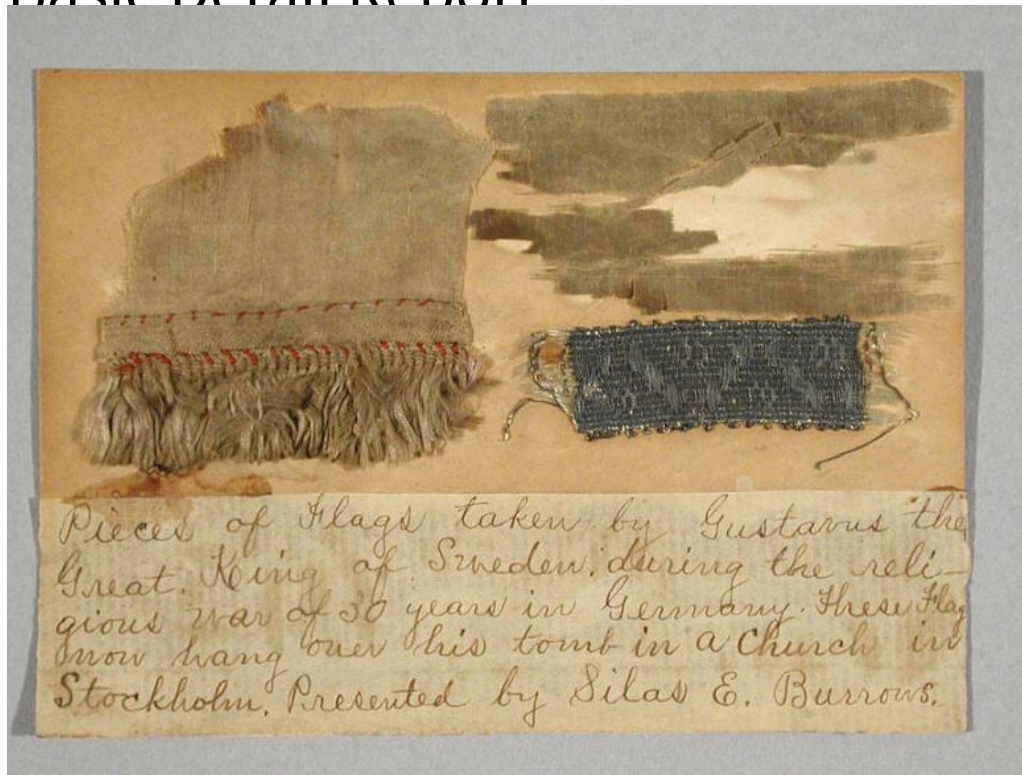 Basic Detail Report
Pieces of Flags taken by Gustavus the
Great. King of Sweden. during the reli-
gious war of 30 years in Germany. These Flag
now hang over his tomb in a Church in
Stockholm. Presented by Silas E. Burrows.